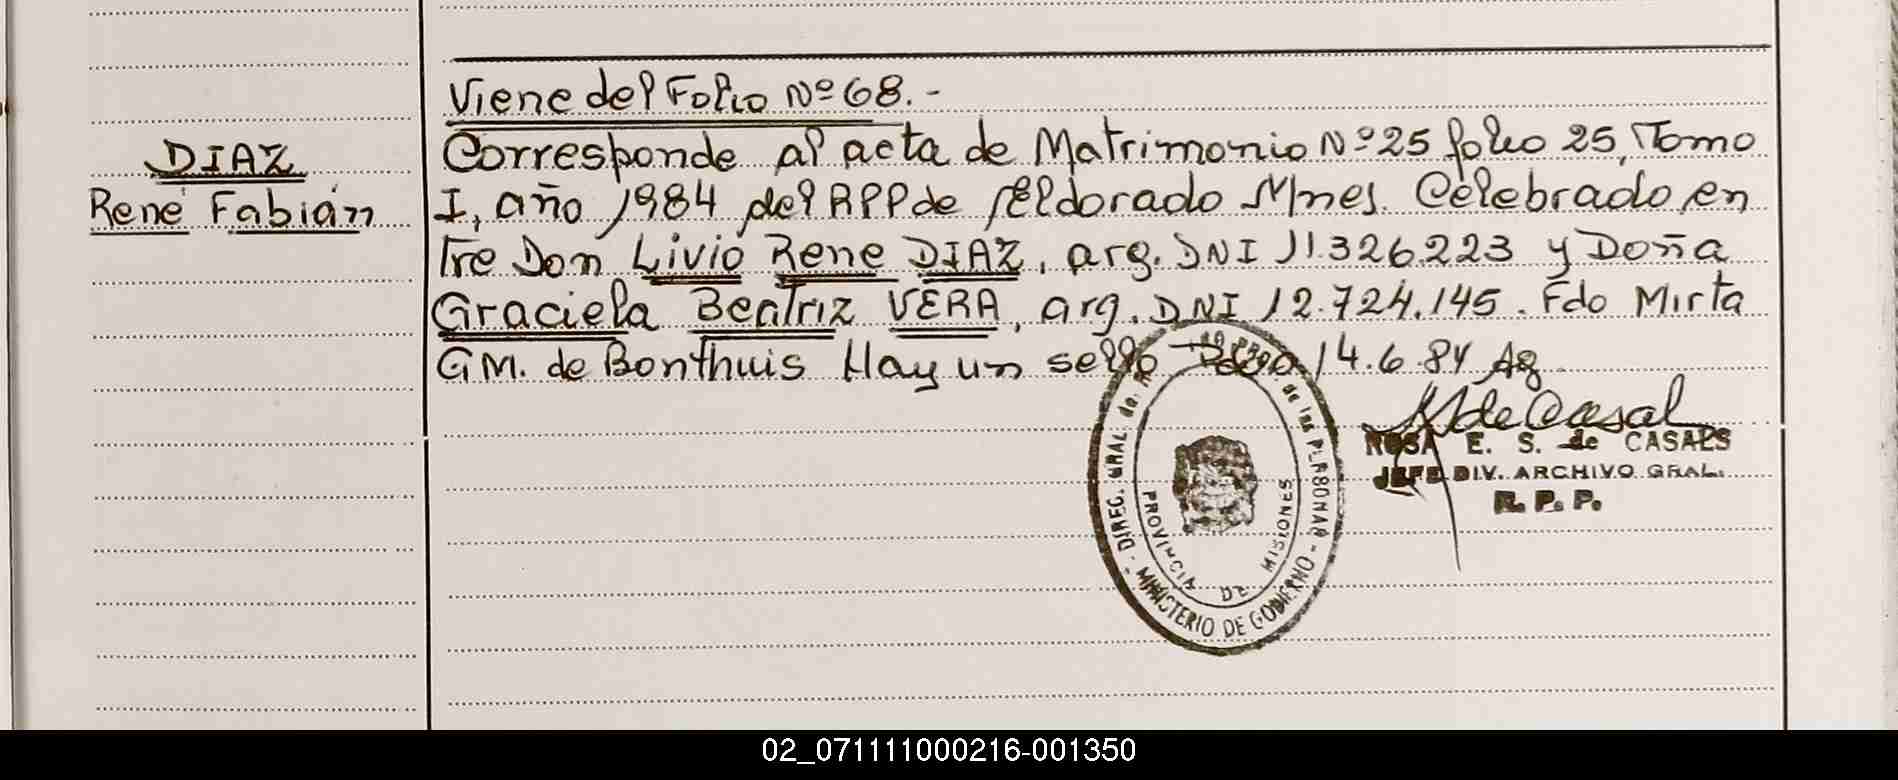 Viene del Folio Nº 68.-
DIAZ
René Fabián
Corresponde al acta de Matrimonio Nº 25 folio 25, Tomo
I, año 1984 del RPP de Eldorado Mnes. Celebrado en
tre Don Livio Rene DIAZ, arg. DNI 11.326.223 y Doña
Graciela Beatriz VERA, arg. DNI 12.724.145. Fdo Mirta
GM. de Bonthuis Hay un sello 14.6.84
ROSA E. S. de CASALS
JEFE DIV. ARCHIVO GRAL.
R. P. P.
DIREC. GRAL. de las PERSONAS - MINISTERIO DE GOBIERNO -
PROVINCIA DE MISIONES
02_071111000216-001350